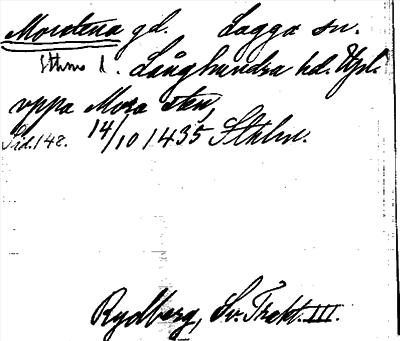 Morstena gd. Lagga sn.
Sthms l. Långhundra hd. Upl.
uppa Mora sten,
Sid. 148. 14/10 1435 Sthlm.
Rydberg, Sv. Trakt. III.